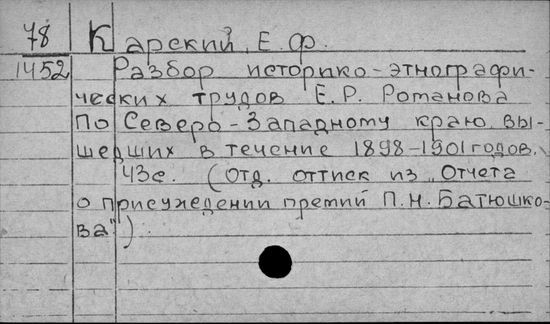 78 Карский, Е.Ф.
1452 Разбор историко-этнографи-
ческих трудов Е.Р. Романова
по Северо-Западному краю, вы-
шедших в течение 1898-1901 годов.
43с. (Отд. оттиск из „Отчета
о присуждении премий П.Н. Батюшко-
ва")